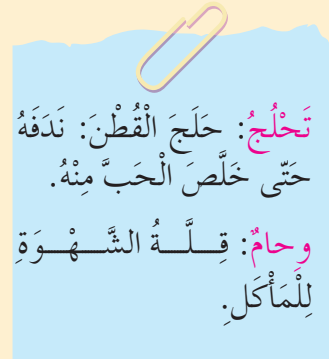 تَحْلُجُ: حَلَجَ الْقُطْنَ: نَدَفَهُ
حَتّى خَلَّصَ الْحَبَّ مِنْهُ.
وحامٌ: قِـــلَّـــةُ الشَّـــهْـــوَةِ
لِلْمَأْكَلِ.